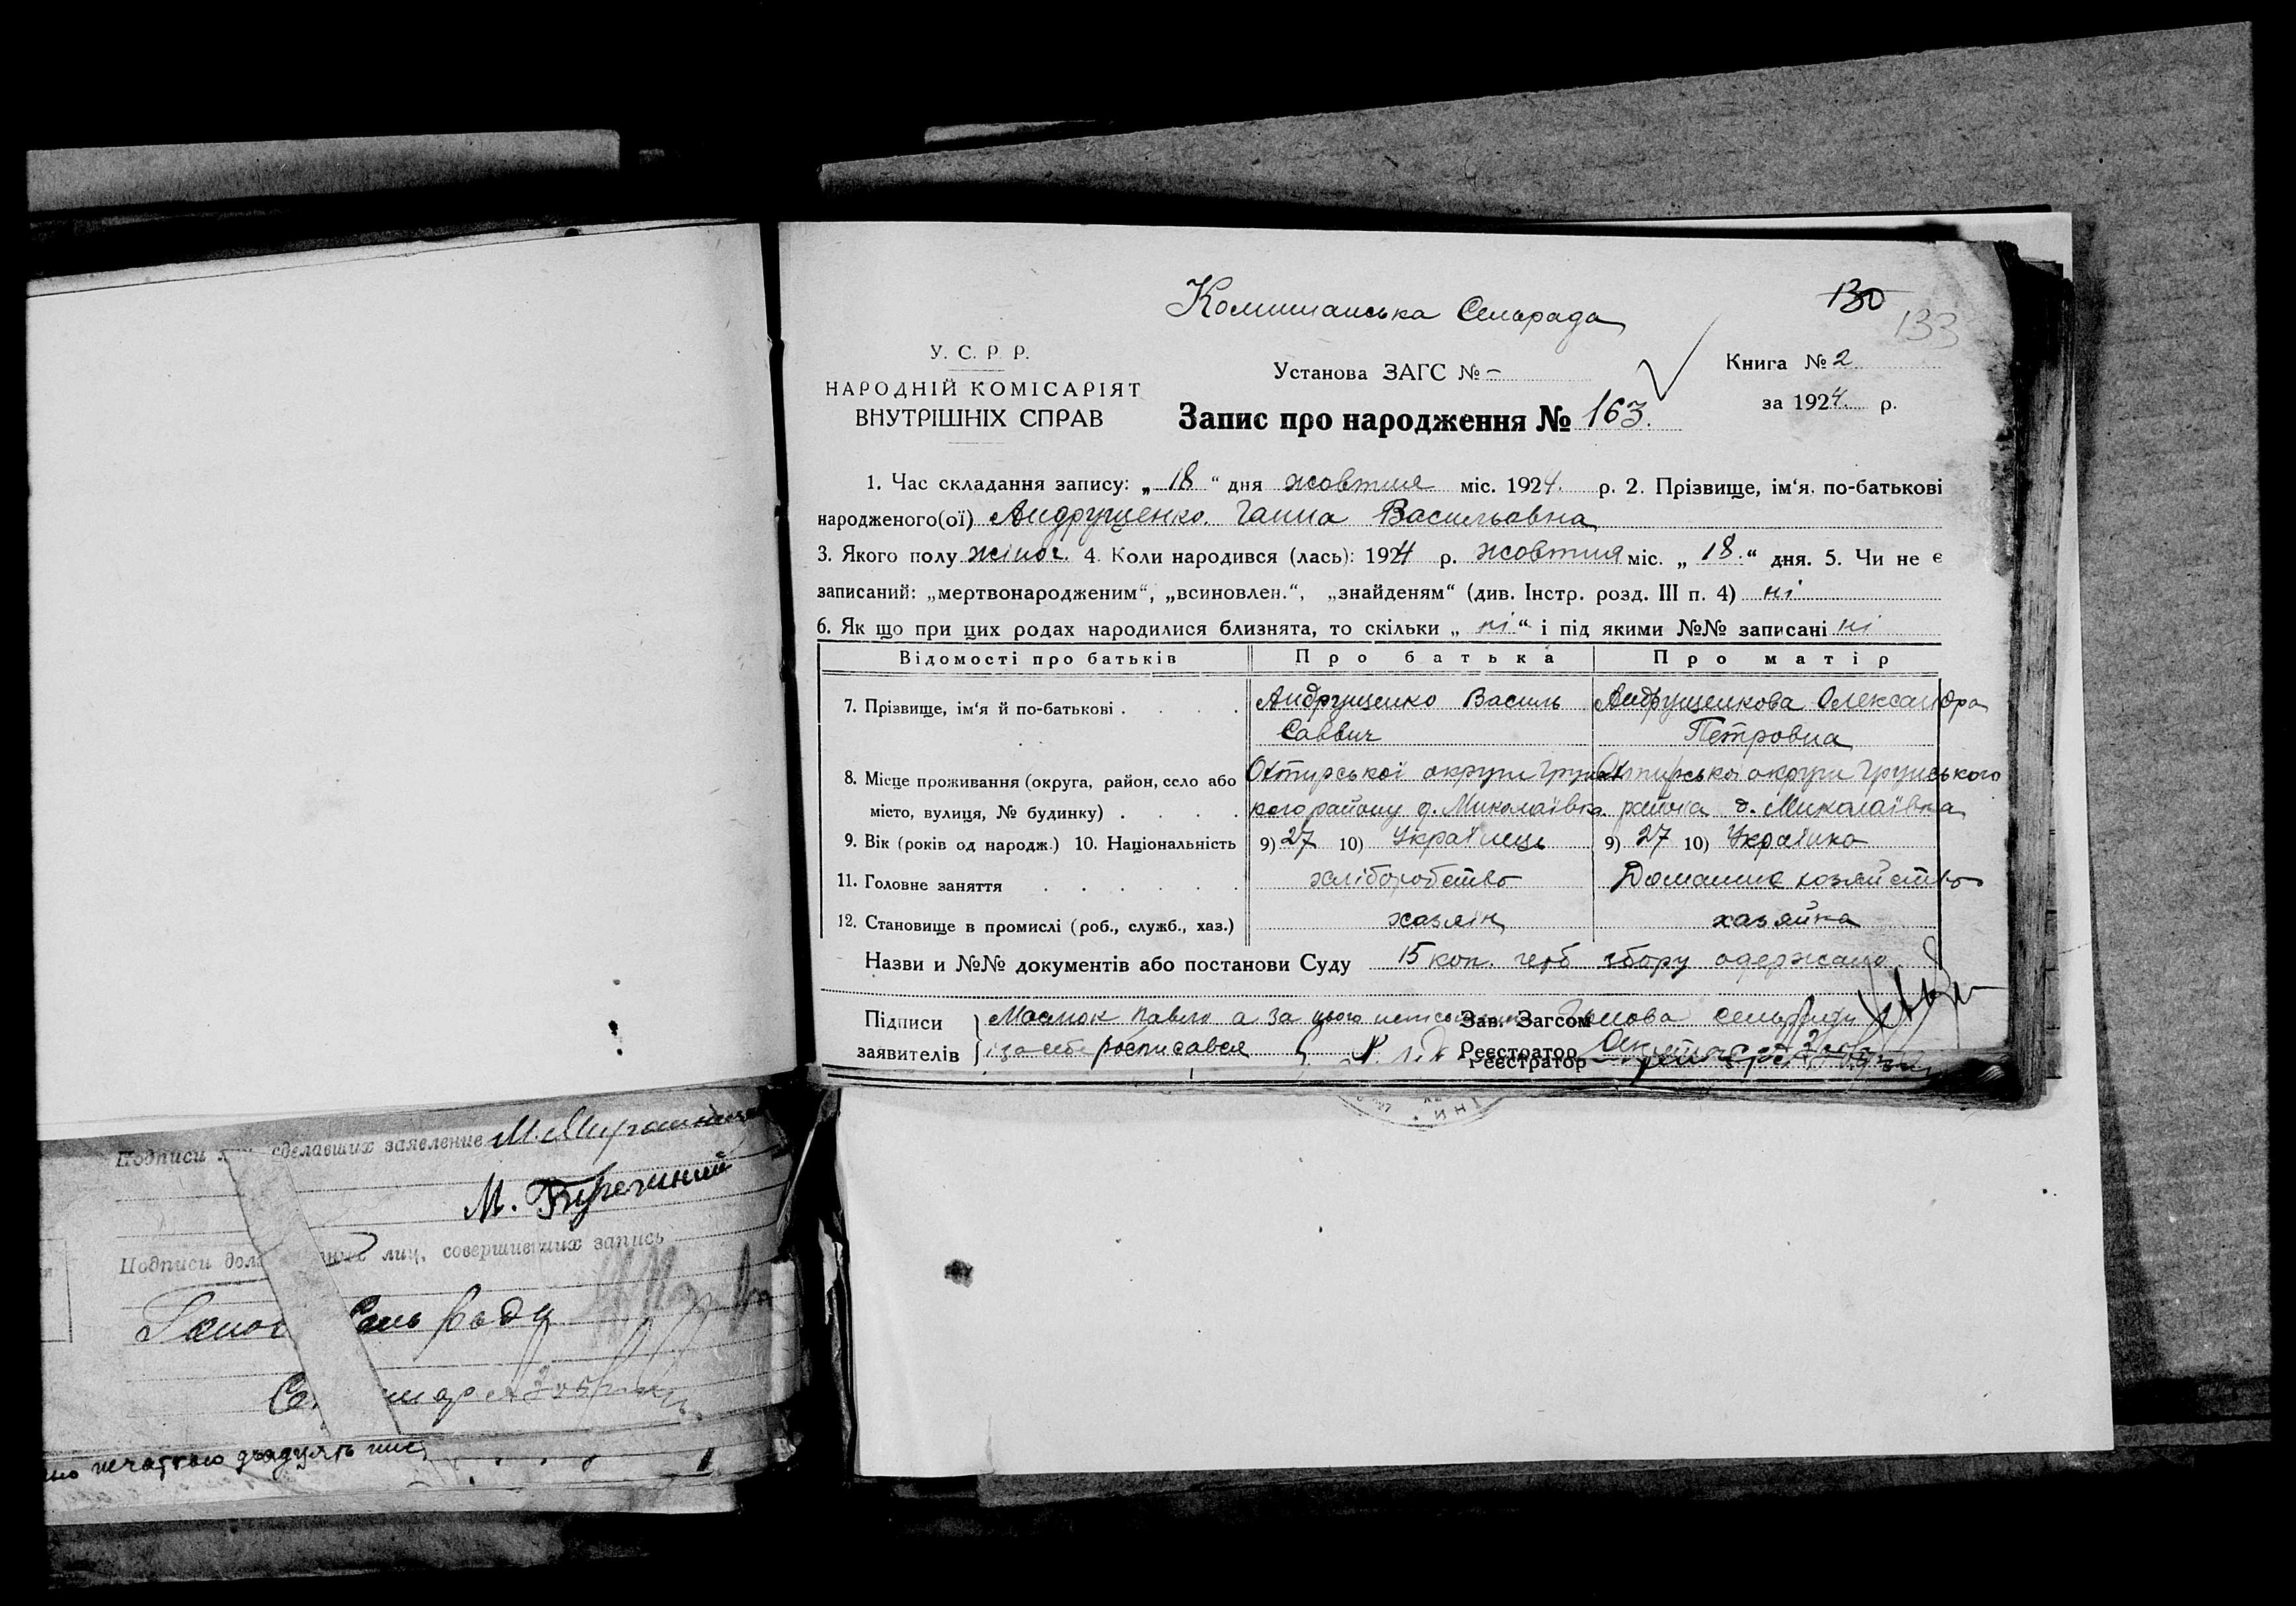 Комишанська Сельрада
130
133
У. С. Р. Р.
НАРОДНІЙ КОМІСАРІЯТ
ВНУТРІШНІХ СПРАВ
Установа ЗАГС № -
Запис про народження № 163.
Книга № 2
за 1924. р.
1. Час складання запису: „ 18 “ дня жовтня міс. 1924. р. 2. Прізвище, ім‘я, по-батькові
народженого(ої) Андрущенко Ганна Васильовна
3. Якого полу жіноч. 4. Коли народився (лась): 1924 р. жовтня міс. „ 18.“ дня. 5. Чи не є
записаний: „мертвонародженим“, „всиновлен.“, „знайденям“ (див. Інстр. розд. III п. 4) ні
6. Як що при цих родах народилися близнята, то скільки „ ні “ і під якими №№ записані ні
Відомості про батьків Про батька Про матір
7. Прізвище, ім‘я й по-батькові . . . . Андрущенко Василь Андрущенкова Олександра
Саввич Петровна
8. Місце проживання (округа, район, село або Охтирської округи Грунсь Охтирської округи Грунського
місто, вулиця, № будинку) . . . . кого району д. Миколаївка. района д. Миколаївка
9. Вік (років од народж.) 10. Національність 9) 27 10) Українець 9) 27 10) Українка
11. Головне заняття . . . . . . хліборобство Домашнє хозяйство
12. Становище в промислі (роб., служб., хаз.) хазяїн хазяйка
Назви и №№ документів або постанови Суду 15 коп. герб збору одержано
Підписи
заявителів
Павло а за цього
і за себе росписався
Зав. Загсом Голова сельради
Реєстратор
Реєстратор
Подписи сделавших заявление М.
М.
Подписи лиц, совершивших запись
Сель ради
печаткою